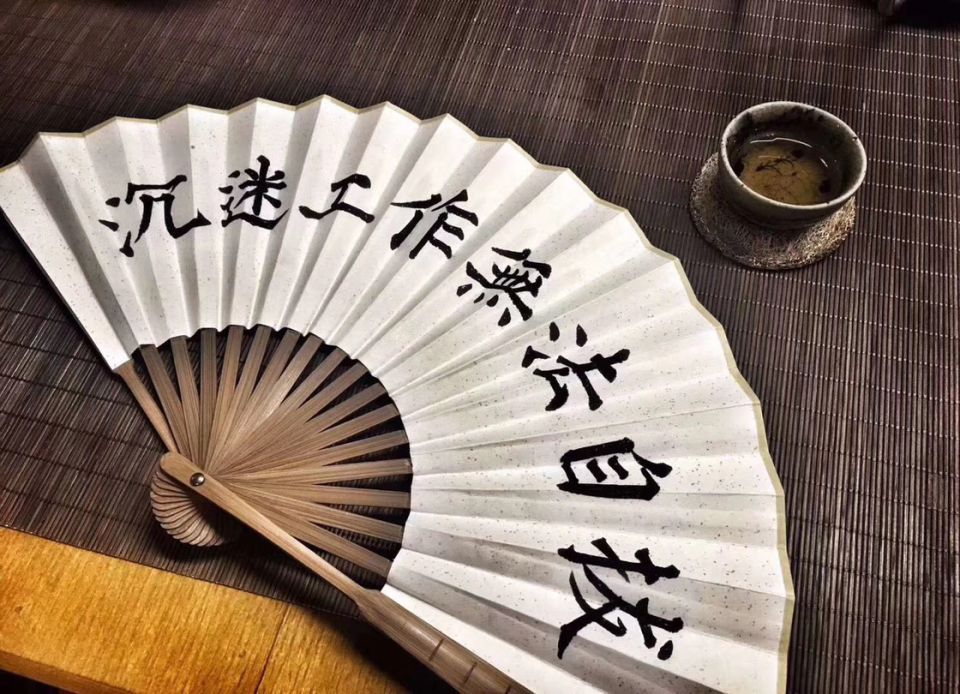 沉迷工作無法自拔